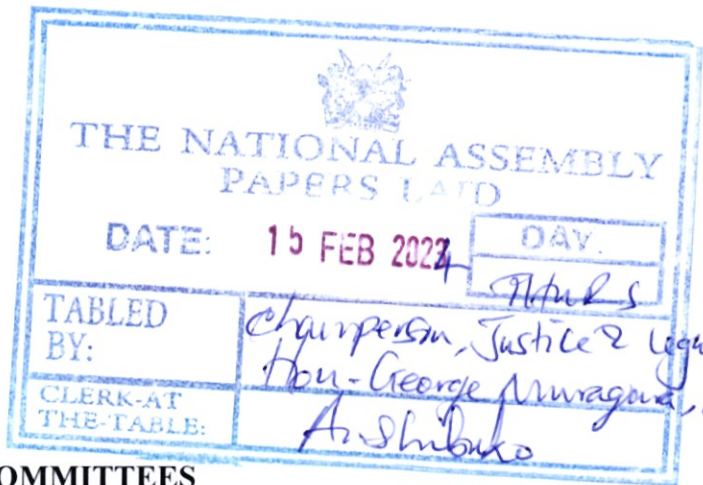 THE NATIONAL ASSEMBLY
PAPERS LAID
DATE: 15 FEB 2024 DAY.
Thurs
TABLED BY: Chairperson, Justice & Legal
Hon. George Murugara,
CLERK-AT THE-TABLE: A. Shibuko
COMMITTEES